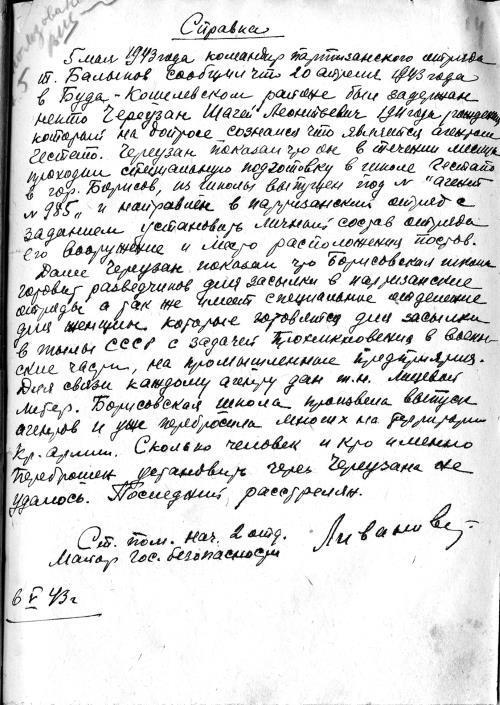 Справка
5 мая 1943 года командир партизанского отряда
т. Балыков сообщил что 20 апреля 1943 года
в Буда-Кошелевском районе был задержан
некто Череузан Леонтьевич 1911 года рождения
который на вопросе сознался что является агентом
Гестапо. Череузан показал что он в течении месяца
проходил специальную подготовку в школе Гестапо
в гор. Борисов, из школы выпущен под № "агент
№ 985" и направлен в партизанский отряд с
заданием установить личный состав отряда
его вооружение и место расположения постов.
Далее Череузан показал что Борисовская школа
готовит разведчиков для засылки в партизанские
отряды а так же имеет специальное отделение
для женщин которые готовятся для засылки
в тылы СССР с задачей проникновения в воен-
ские части, на промышленные предприятия.
Для связи каждому агенту дан т.н. лицевой
литер. Борисовская школа произвела выпуск
агентов и уже перебросила многих на территорию
Кр. армии. Сколько человек и кто именно
переброшен установить через Череузана не
удалось. Последний расстрелян.
Ст. пом. нач. 2 отд.
Майор гос. безопасности
6 V 43 г